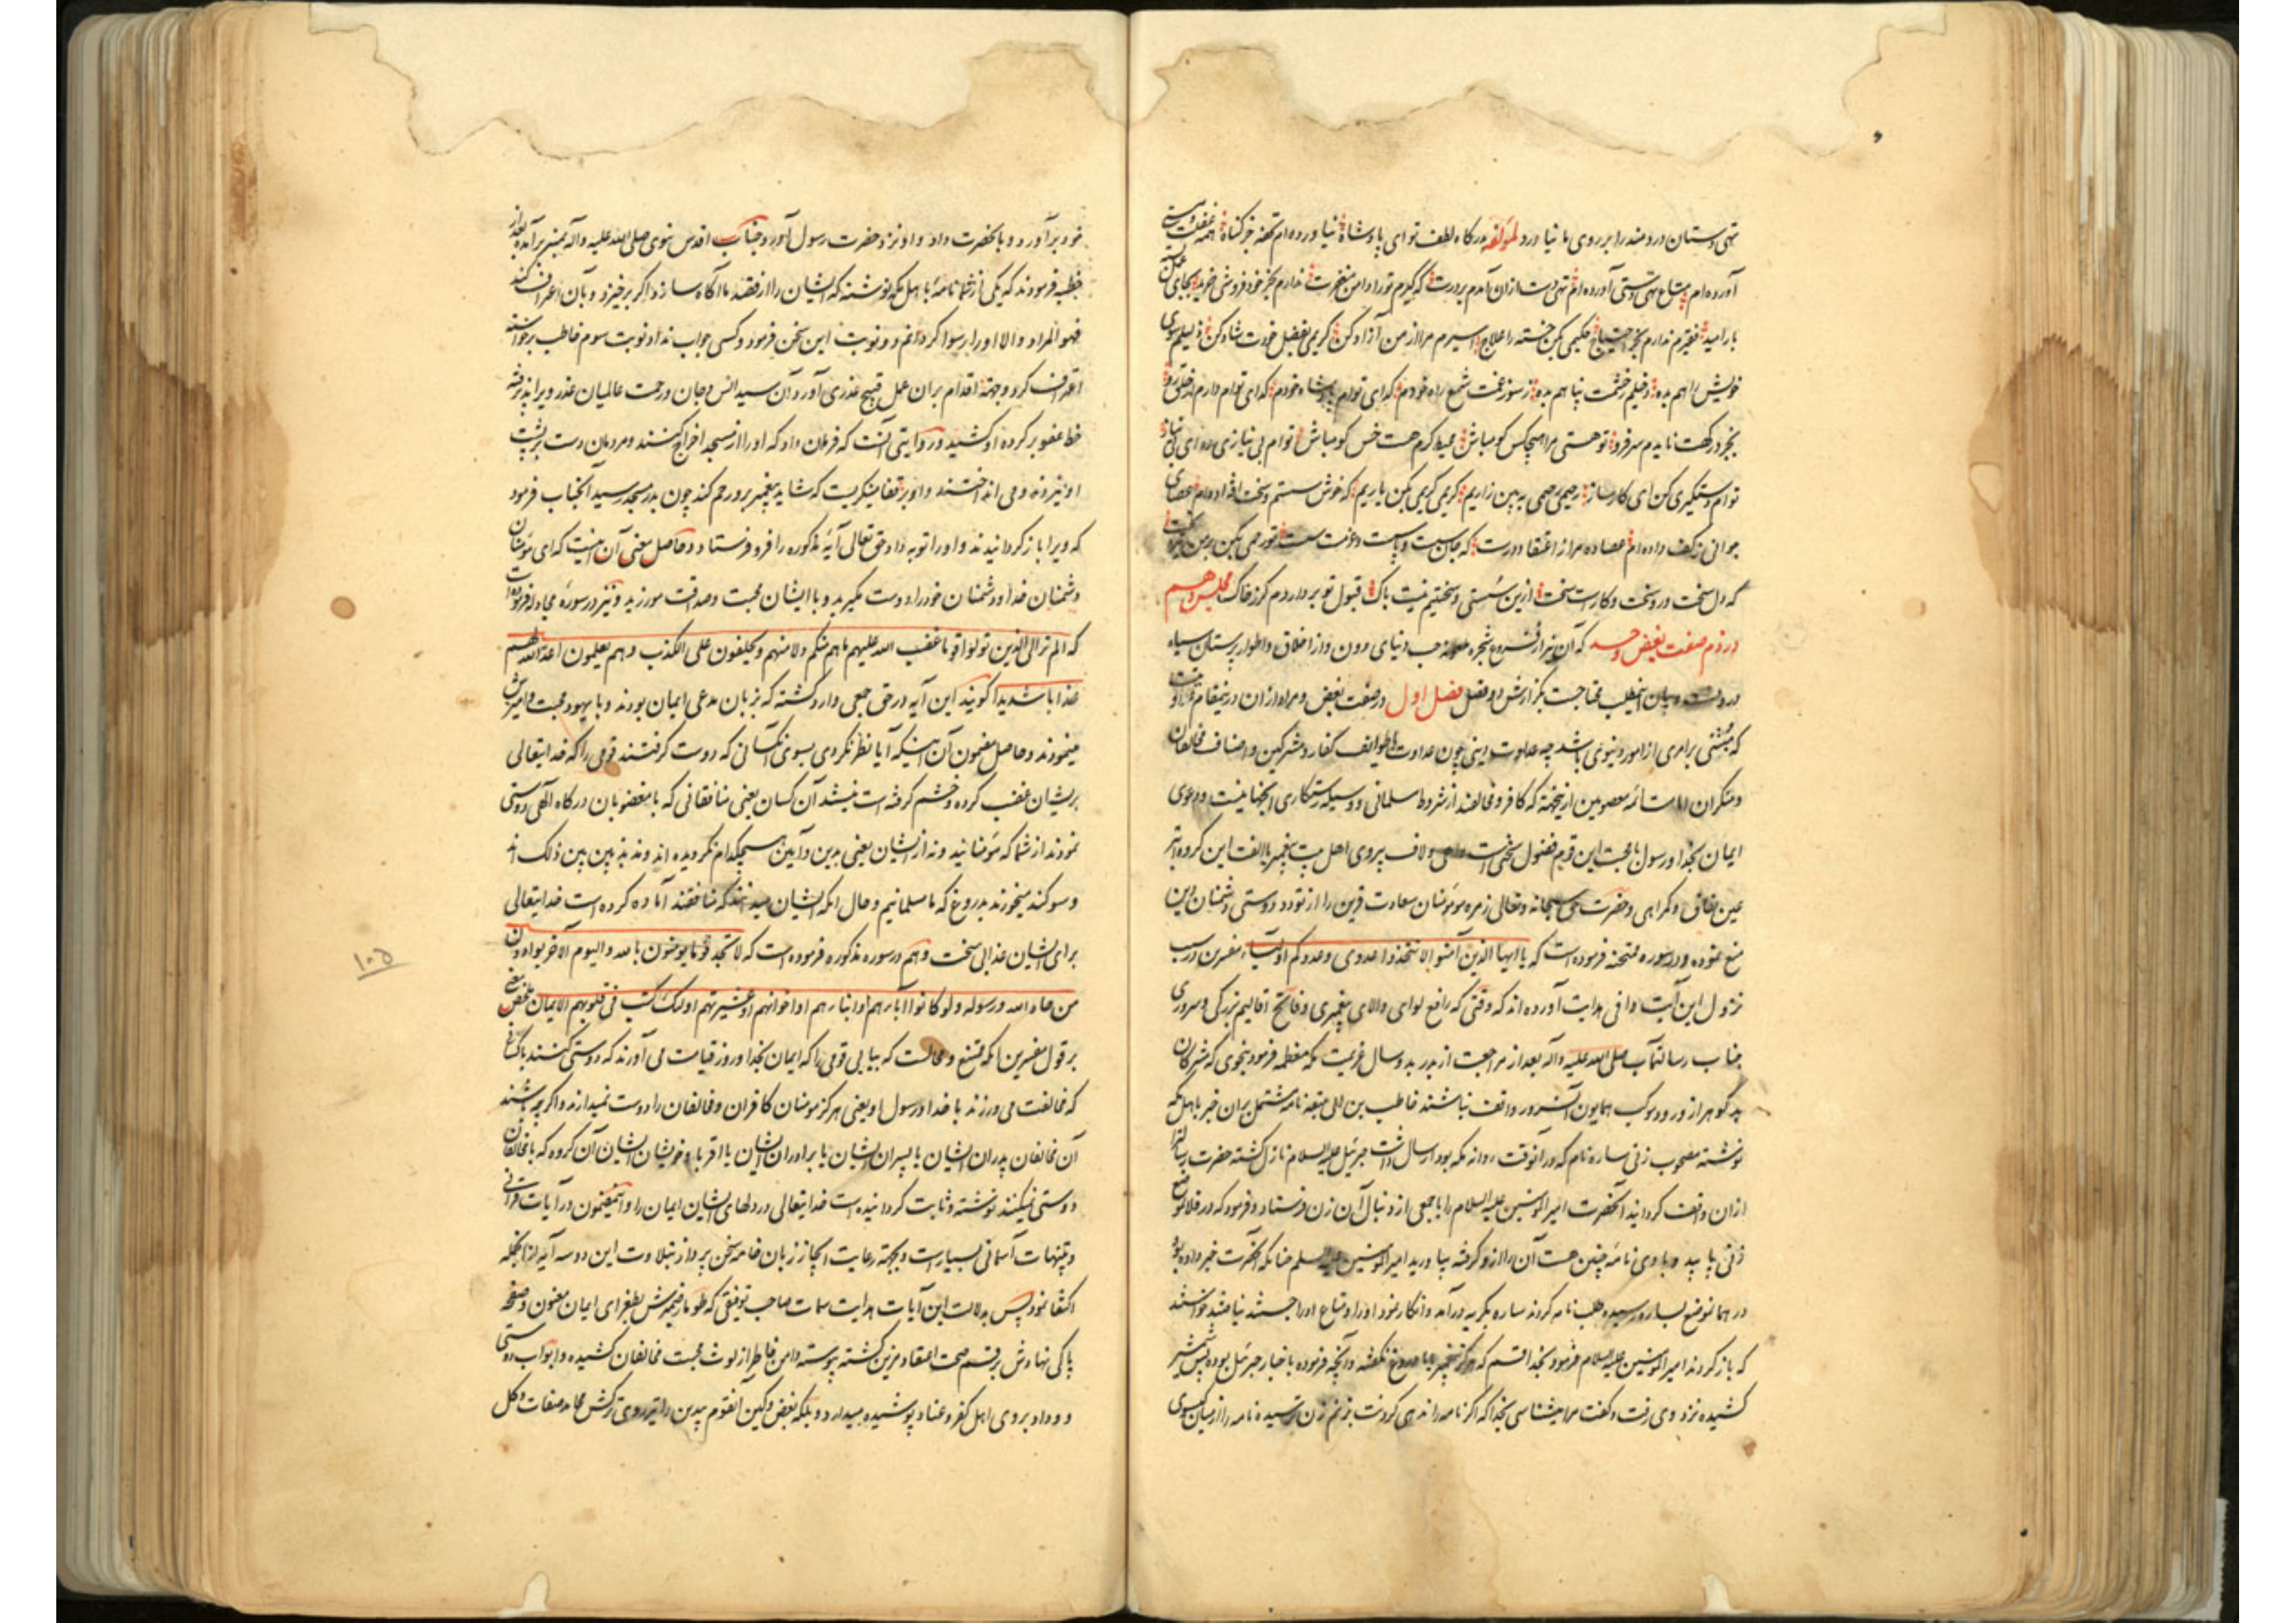 تهی دستان دردمند را بر روی ما نیاورد لمؤلفه بدرگاه لطف تو ای پادشاه نیاورده‌ام تحفه جز گناه همه غفلت و سستی
آورده‌ام متاع تهی دستی آورده‌ام تهی دست ازان آمدم بر درت که گیرم تو را دامن مغفرت ندارم بجز خود فروشی خرید بجای عمل
بار امید فقیرم ندارم بجز احتیاج حکیمی بکن خسته را علاج اسیرم مرا از من آزاد کن کریمی بفضل خودت شاد کن ذلیلم سوی
خویش راهم بده دخیلم ز خشمت پناهم بده ز سوز غمت شمع راه خودم گدای توام پادشاه خودم گدای توام دارم از خلق رو
بجز درگهت نایدم سر فرو تو هستی مرا هیچکس گو مباش محیط کرم هست خس گو مباش توام بی نیازی ده ای بی نیاز
توام دستگیری کن ای کارساز رحیمی رحمی به بین زاریم کریمی کریمی بکن یاریم که خوش سستم و سخت افتاده‌ام عصای
جوانی ز کف داده‌ام عصا ده مرا از اعتقاد درست که جان سست و پا سست و عزمست سست تو رحمی بکن بر من
که دل سخت و رو سخت و کارست سخت ازین سستی و سختیم نیست باک قبول تو بردارم گر ز خاک مجلس دهم
در ذم صفت بغض و حسد که آن نیز از فروع شجره ملعونه حب دنیای دون و از اخلاق و اطوار پرستان سیاه
درونست و بیان اینمطلب محتاجست بگزارش دو فصل فصل اول در صفت بغض و مراد ازان درینمقام
که مبتنی بر امری از امور دنیوی باشد چه عداوت دینی چون عداوت با طوایف کفار و مشرکین و اصناف مخالفان
و منکران امامت ائمه معصومین ازینجهة که کافر و مخالفند از شروط مسلمانی و وسیله رستگاری آنجهانیست و دعوی
ایمان بخدا و رسول با محبت این قوم فضول سخنی است واهی و لاف پیروی اهل بیت پیغمبر با الفت این گروه ابتر
عین نفاق و گمراهی و حضرت حق سبحانه و تعالی زمره مؤمنان سعادت قرین را از تودد و دوستی دشمنان دین
منع نموده و در سوره ممتحنه فرموده است که یا ایها الذین آمنوا لا تتخذوا عدوی و عدوکم اولیاء مفسرین در سبب
نزول این آیت وافی هدایت آورده‌اند که وقتی که رافع لوای والای پیغمبری و فاتح اقالیم بزرگی و سروری
جناب رسالتمآب صلی الله علیه وآله بعد از مراجعت از بدر بدو سال عزیمت مکه معظمه فرمود بنحوی که مشرکان
بدگوهر از ورود موکب همایون آنسرور واقف نباشند حاطب بن ابی بلتعه نامه مشتمل بران خبر باهل مکه
نوشته مصحوب زنی ساره نام که در آنوقت روانه مکه بود ارسال داشت جبرئیل علیه السلام نازل گشته حضرت را
ازان واقف گردانید آنحضرت امیر المؤمنین علیه السلام را با جمعی از دنبال آن زن فرستاد و فرمود که در فلان موضع
زنی بیابید و با وی نامه چنین هست آن را ازو گرفته بیاورید امیر المؤمنین علیه السلام چنانکه آنحضرت خبر داده بود
در همان موضع بساره رسیده طلب نامه کردند ساره بگریه درآمد و انکار نمود او را و متاع او را جستند نیافتند خواستند
که بازگردند امیر المؤمنین علیه السلام فرمود بخدا قسم که هرگز پیغمبر بما دروغ نگفته و آنچه فرموده باخبار جبرئیل بوده پس شمشیر
کشیده نزد وی رفت و گفت مرا میشناسی بخدا که اگر نامه را ندهی گردنت بزنم زن ترسیده نامه را از میان گیسوی
خود برآورد و بآنحضرت داد و او نزد حضرت رسول آورد و جناب اقدس نبوی صلی الله علیه وآله بمنبر برآمده بعد از
خطبه فرمودند که یکی از شما نامه باهل مکه نوشته که ایشان را از قصد ما آگاه سازد اگر برخیزد و بآن اعتراف کند
فهو المراد والا او را رسوا گردانم دو نوبت این سخن فرمود و کسی جواب نداد نوبت سوم حاطب برخواسته
اعتراف کرد و جهة اقدام بران عمل قبیح عذری آورد و آن سید انس و جان و رحمت عالمیان عذر ویرا پذیرفته
خط عفو بر کرده او کشید و در روایتی آنست که فرمان داد که او را از مسجد اخراج کنند و مردمان دست بر پشت
او نیز زده و می انداختند و او بر قفا مینگریست که شاید پیغمبر برو رحم کند چون بدر مسجد رسید آنجناب فرمود
که ویرا بازگردانیدند و او را توبه داد و حق تعالی آیه مذکوره را فرو فرستاد و حاصل معنی آن اینست که ای مؤمنان
دشمنان خدا و دشمنان خود را دوست مگیرید و با ایشان محبت و صداقت مورزید و نیز در سوره مجادله فرموده است
که الم تر الی الذین تولوا قوما غضب الله علیهم ما هم منکم ولا منهم ویحلفون علی الکذب وهم یعلمون اعد الله لهم
عذابا شدیدا گویند این آیه در حق جمعی وارد گشته که بزبان مدعی ایمان بودند و با یهود محبت و آمیزش
مینمودند و حاصل مضمون آن اینکه آیا نظر نکردی بسوی آنکسانی که دوست گرفتند قومی را که خدایتعالی
بر ایشان غضب کرده و خشم گرفته است نیستند آن کسان یعنی منافقانی که با مغضوبان درگاه آلهی دوستی
نمودند از شما که مؤمنانید و نه از ایشان یعنی بدین و آیین هیچکدام نگرویده اند و مذبذبین بین ذلک اند
و سوگند میخورند بدروغ که ما مسلمانیم و حال آنکه ایشان میدانند که منافقند آماده کرده است خدایتعالی
برای ایشان عذابی سخت و هم در سوره مذکوره فرموده است که لا تجد قوما یؤمنون بالله والیوم الآخر یوادون
من حاد الله ورسوله ولو کانوا آباءهم او ابناءهم او اخوانهم او عشیرتهم اولئک کتب فی قلوبهم الایمان ملخص معنی
بر قول مفسرین آنکه ممتنع و محالست که بیابی قومی را که ایمان بخدا و روز قیامت می آورند که دوستی کنند با کسانی
که مخالفت می ورزند با خدا و رسول او یعنی هرگز مومنان کافران و مخالفان را دوست نمیدارند و اگر چه باشند
آن مخالفان پدران ایشان یا پسران ایشان یا برادران ایشان یا اقربا و خویشان ایشان آن گروه که با مخالفان
دوستی نمیکنند نوشته و ثابت گردانیده است خدایتعالی در دلهای ایشان ایمان را و اینمضمون در آیات قرآنی
و تنبیهات آسمانی بسیارست و بجهة رعایت ایجاز زبان خامه سخن پرداز بتلاوت این دو سه آیه از آنجمله
اکتفا نمود پس بدلالت این آیات هدایت سمات صاحب توفیقی که طومار ضمیرش بطغرای ایمان معنون و صفحه
پاکی نهادش برقم صحت اعتقاد مزین گشته پیوسته دامن خاطر از لوث محبت مخالفان کشیده و ابواب دوستی
و وداد بروی اهل کفر و عناد پوشیده میدارد و بلکه بغض و کین آنقوم بیدین را
۱۰۵